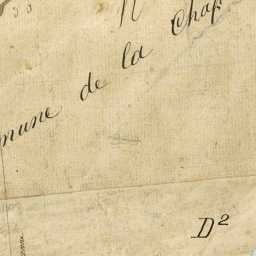 mune de la Chap
D²